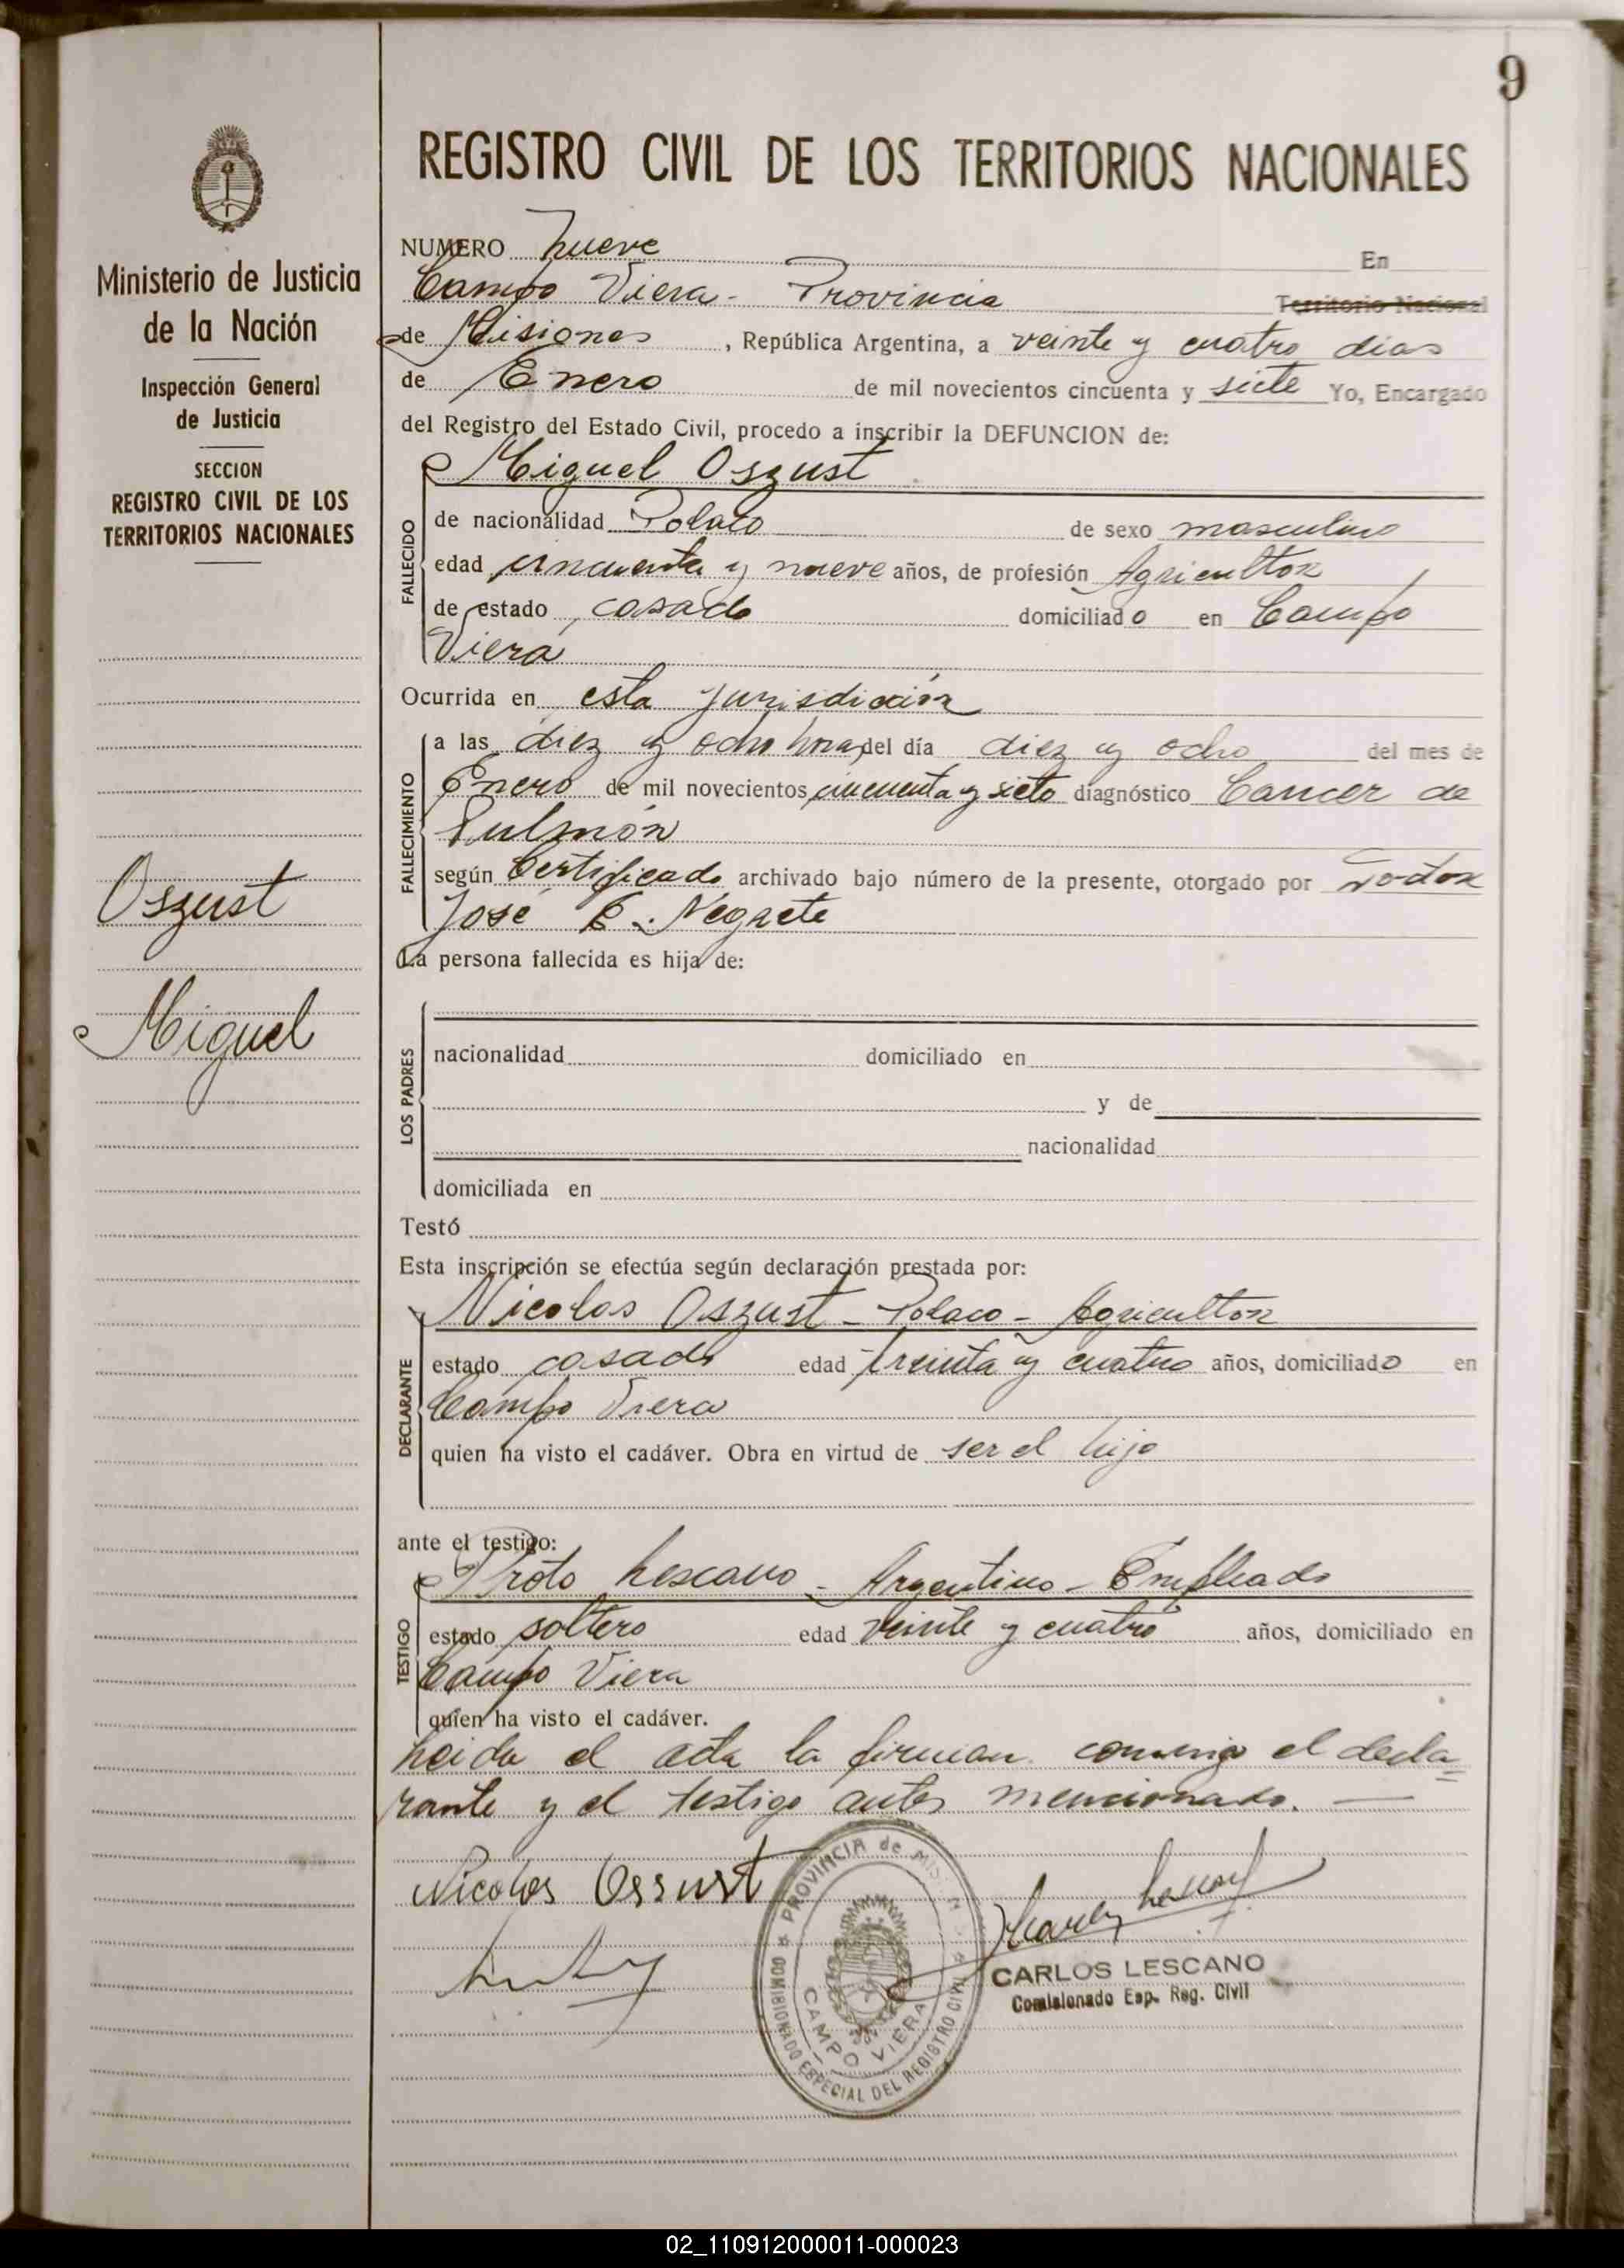 9
REGISTRO CIVIL DE LOS TERRITORIOS NACIONALES
Ministerio de Justicia
de la Nación
Inspección General
de Justicia
SECCION
REGISTRO CIVIL DE LOS
TERRITORIOS NACIONALES
Oszust
Miguel
NUMERO nueve En
Campo Viera - Provincia Territorio Nacional
de Misiones, República Argentina, a veinte y cuatro dias
de Enero de mil novecientos cincuenta y siete Yo, Encargado
del Registro del Estado Civil, procedo a inscribir la DEFUNCION de:
Miguel Oszust
FALLECIDO
de nacionalidad Polaco de sexo masculino
edad cincuenta y nueve años, de profesión Agricultor
de estado casado domiciliado en Campo
Viera
Ocurrida en esta jurisdicción
FALLECIMIENTO
a las diez y ocho horas del día diez y ocho del mes de
Enero de mil novecientos cincuenta y siete diagnóstico Cancer de
Pulmón
según Certificado archivado bajo número de la presente, otorgado por
José E. Negrete
La persona fallecida es hija de:
LOS PADRES
nacionalidad domiciliado en
y de
nacionalidad
domiciliada en
Testó
Esta inscripción se efectúa según declaración prestada por:
DECLARANTE
Nicolas Oszust - Polaco - Agricultor
estado casado edad treinta y cuatro años, domiciliado en
Campo Viera
quien ha visto el cadáver. Obra en virtud de ser el hijo
ante el testigo:
TESTIGO
Proto Lescano - Argentino - Empleado
estado soltero edad veinte y cuatro años, domiciliado en
Campo Viera
quien ha visto el cadáver.
Leida el acta la firman conmigo el decla=
rante y el testigo antes mencionado. —
Nicolas Ossust
PROVINCIA de MISIONES
COMISIONADO ESPECIAL DEL REGISTRO CIVIL
CAMPO VIERA
CARLOS LESCANO
Comisionado Esp. Reg. Civil
02_110912000011-000023